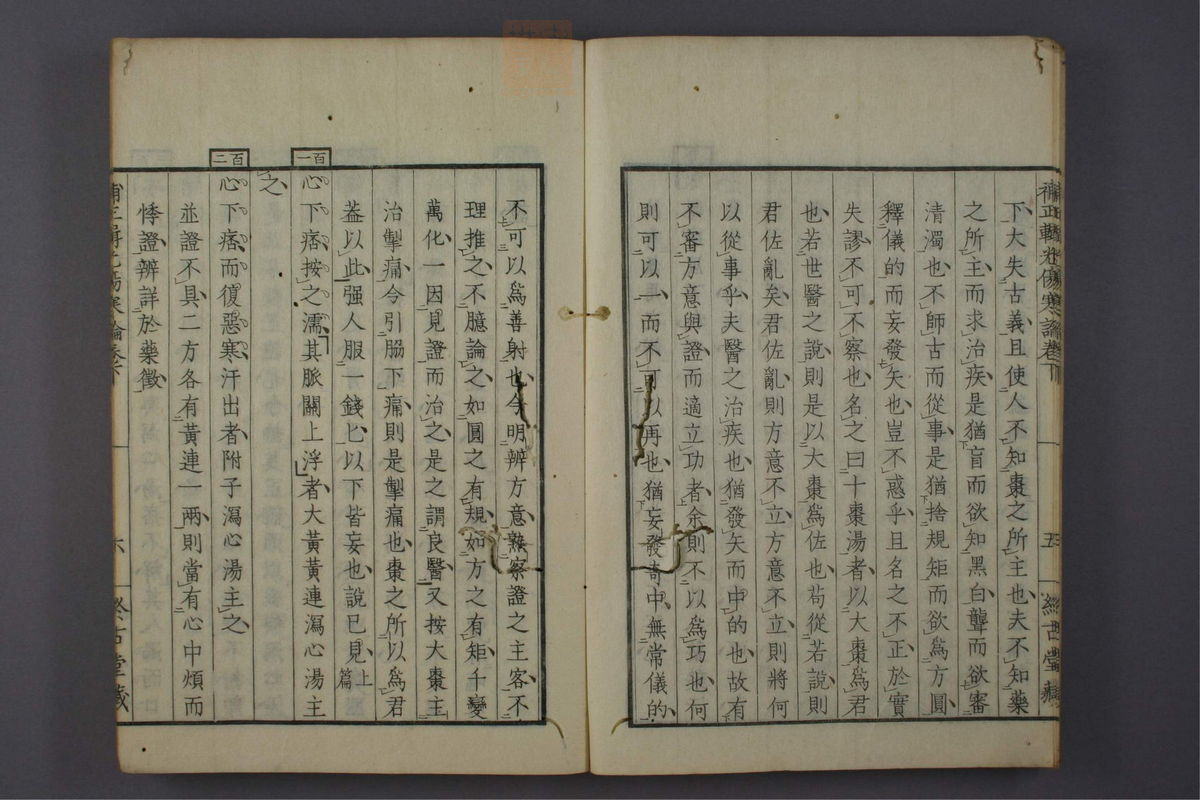 補正輯光傷寒論卷下
五
下大失古義且使人不知棗之所主也夫不知藥
之所主而求治疾是猶盲而欲知黑白聾而欲審
清濁也不師古而從事是猶捨規矩而欲爲方圓
釋儀的而妄發矢也豈不惑乎且名之不正於實
失謬不可不察也名之曰十棗湯者以大棗爲君
也若世醫之說則是以大棗爲佐也苟從若說則
君佐亂矣君佐亂則方意不立方意不立則將何
以從事乎夫醫之治疾也猶發矢而中的也故有
不審方意與證而適立功者余則不以爲巧也何
則可以一而不可以再也猶妄發奇中無常儀的
不可以爲善射也今明辨方意熟察證之主客不
理推之不臆論之如圓之有規如方之有矩千變
萬化一因見證而治之是之謂良醫又按大棗主
治掣痛今引脇下痛則是掣痛也棗之所以爲君
葢以此强人服一錢匕以下皆妄也說已見上篇
百一
心下痞按之濡其脈關上浮者大黃黃連瀉心湯主
之
百二
心下痞而復惡寒汗出者附子瀉心湯主之
並證不具二方各有黃連一兩則當有心中煩而
悸證辨詳於藥徵
六